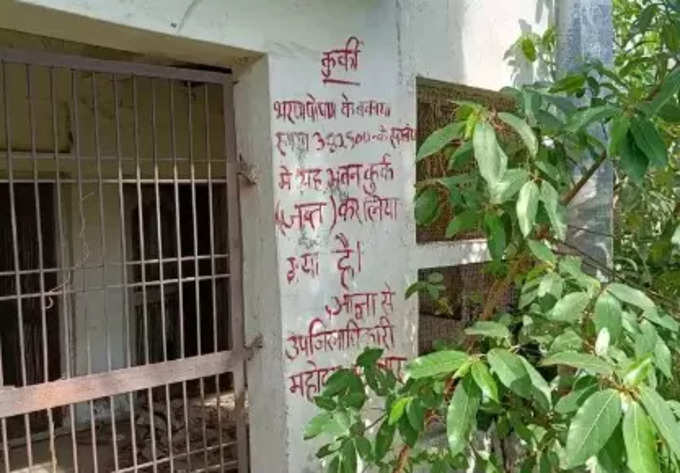 कुर्की
भरणपोषण के बकाया
रुपया 380500- के सम्बंध
में यह भवन कुर्क
(जब्त) कर लिया
गया है।
आज्ञा से
उपजिलाधिकारी
महोदय